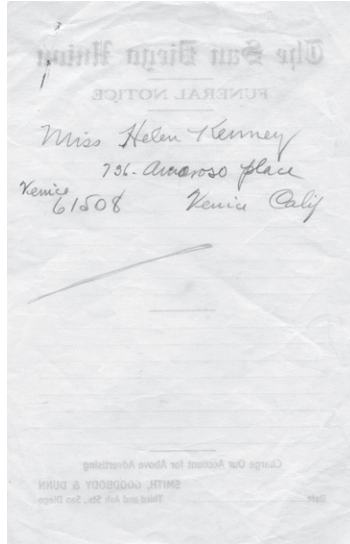 The San Diego Union
FUNERAL NOTICE
Miss Helen Kenney
736 - Amoroso place
Venice
61508 Venice Calif
Charge Our Account for Above Advertising
SMITH, GOODBODY & DUNN
Date Third and Ash Sts., San Diego